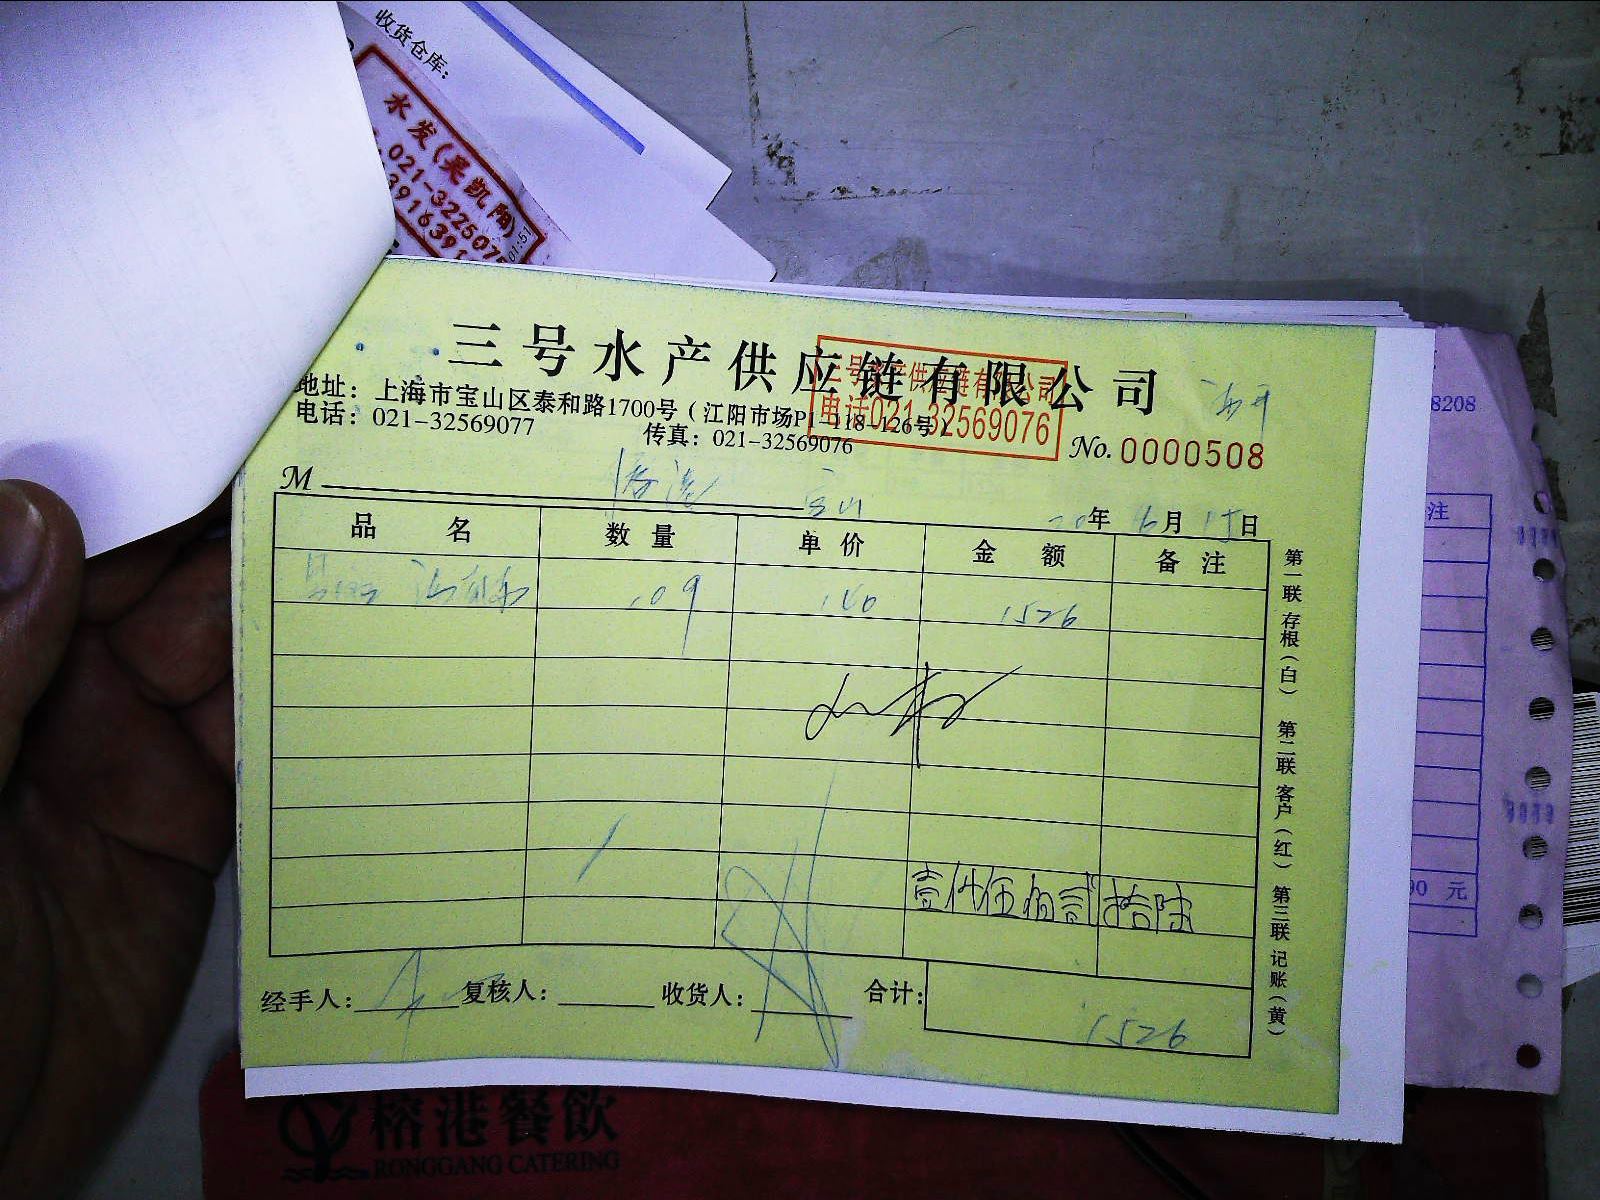 收货仓库：
水发(吴凯阳)
021-3225075
3916391
01:51
三号水产供应链有限公司
三号水产供应链有限公司
电话021-32569076
地址：上海市宝山区泰和路1700号（江阳市场P1-118-126号）
电话：021-32569077 传真：021-32569076
No. 0000508
8208
M 宝山
20年 6月 15日
品 名 数 量 单 价 金 额 备 注
109 140 1526
壹仟伍佰贰拾陆
经手人： 复核人： 收货人： 合计：
1526
第一联 存根（白） 第二联 客户（红） 第三联 记账（黄）
注
00 元
榕港餐飲
RONGGANG CATERING